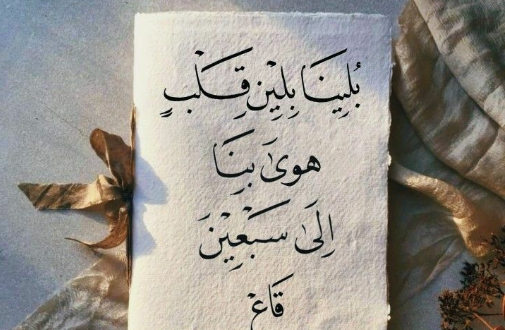 بُلِينَا بِلِيْنِ قَلْبٍ
هوىٰ بِنَا
اِلَىٰ سَبْعِيْنَ
قَاعْ